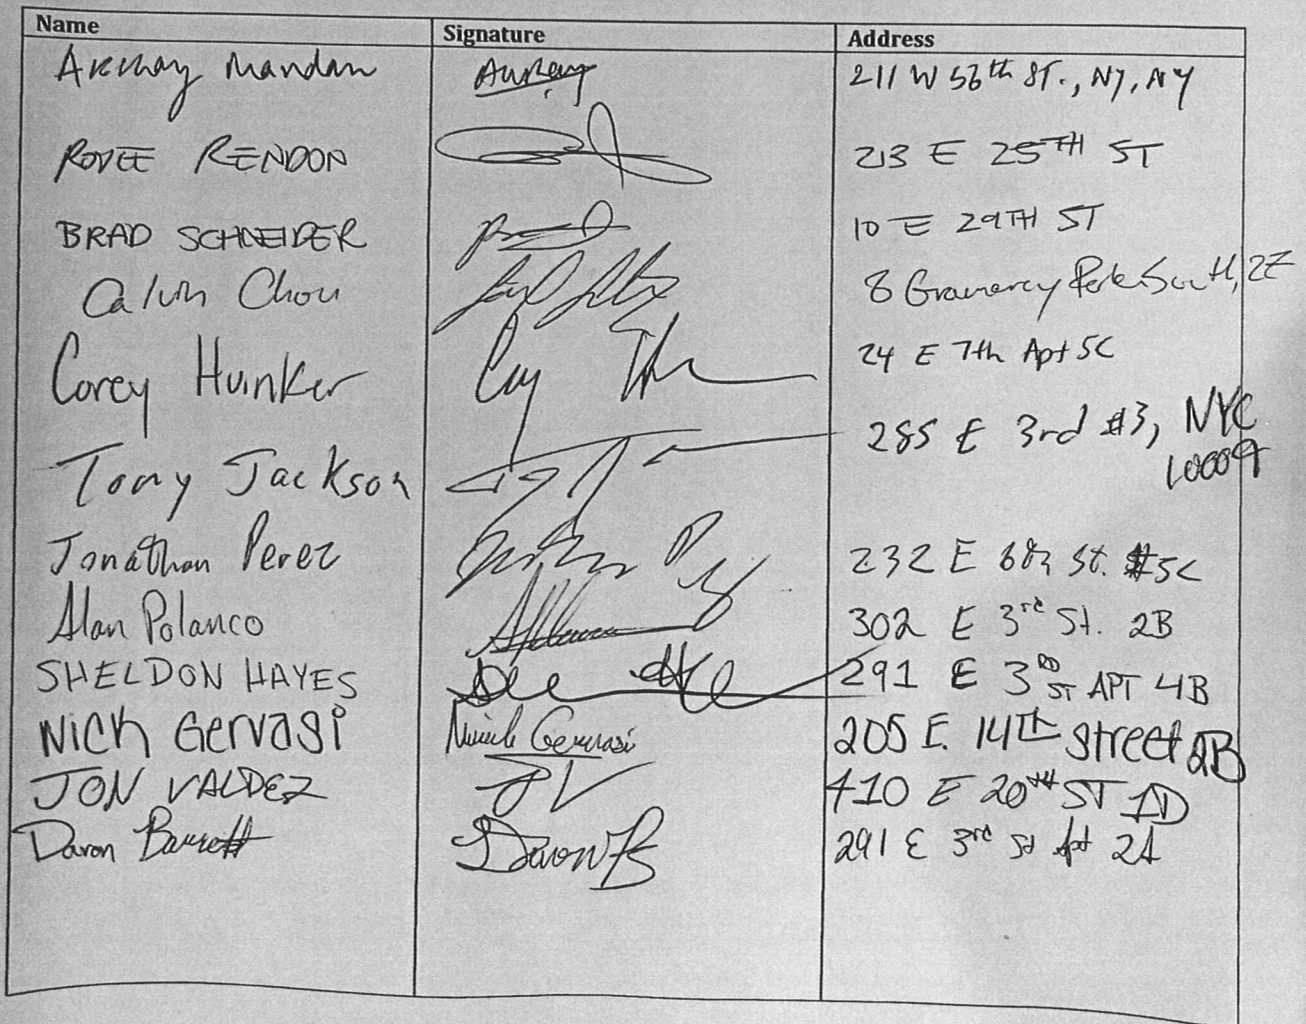 Name Signature Address
Akshay Mandan 211 W 56th St., NY, NY
ROVEE RENDON 213 E 25TH ST
BRAD SCHNEIDER 10 E 29TH ST
Calvin Chou 8 Gramercy Park South, 2E
Corey Huinker 24 E 7th Apt 5C
Tony Jackson 285 E 3rd #3, NYC
10009
Jonathan Perez 232 E 6th St. #5C
Alan Polanco 302 E 3rd St. 2B
SHELDON HAYES 291 E 3RD ST APT 4B
Nick Gervasi Nick Gervasi 205 E. 14th Street 2B
JON VALDEZ JV 410 E 20TH ST 1D
Daron Barrett Daron B 291 E 3rd St Apt 2A